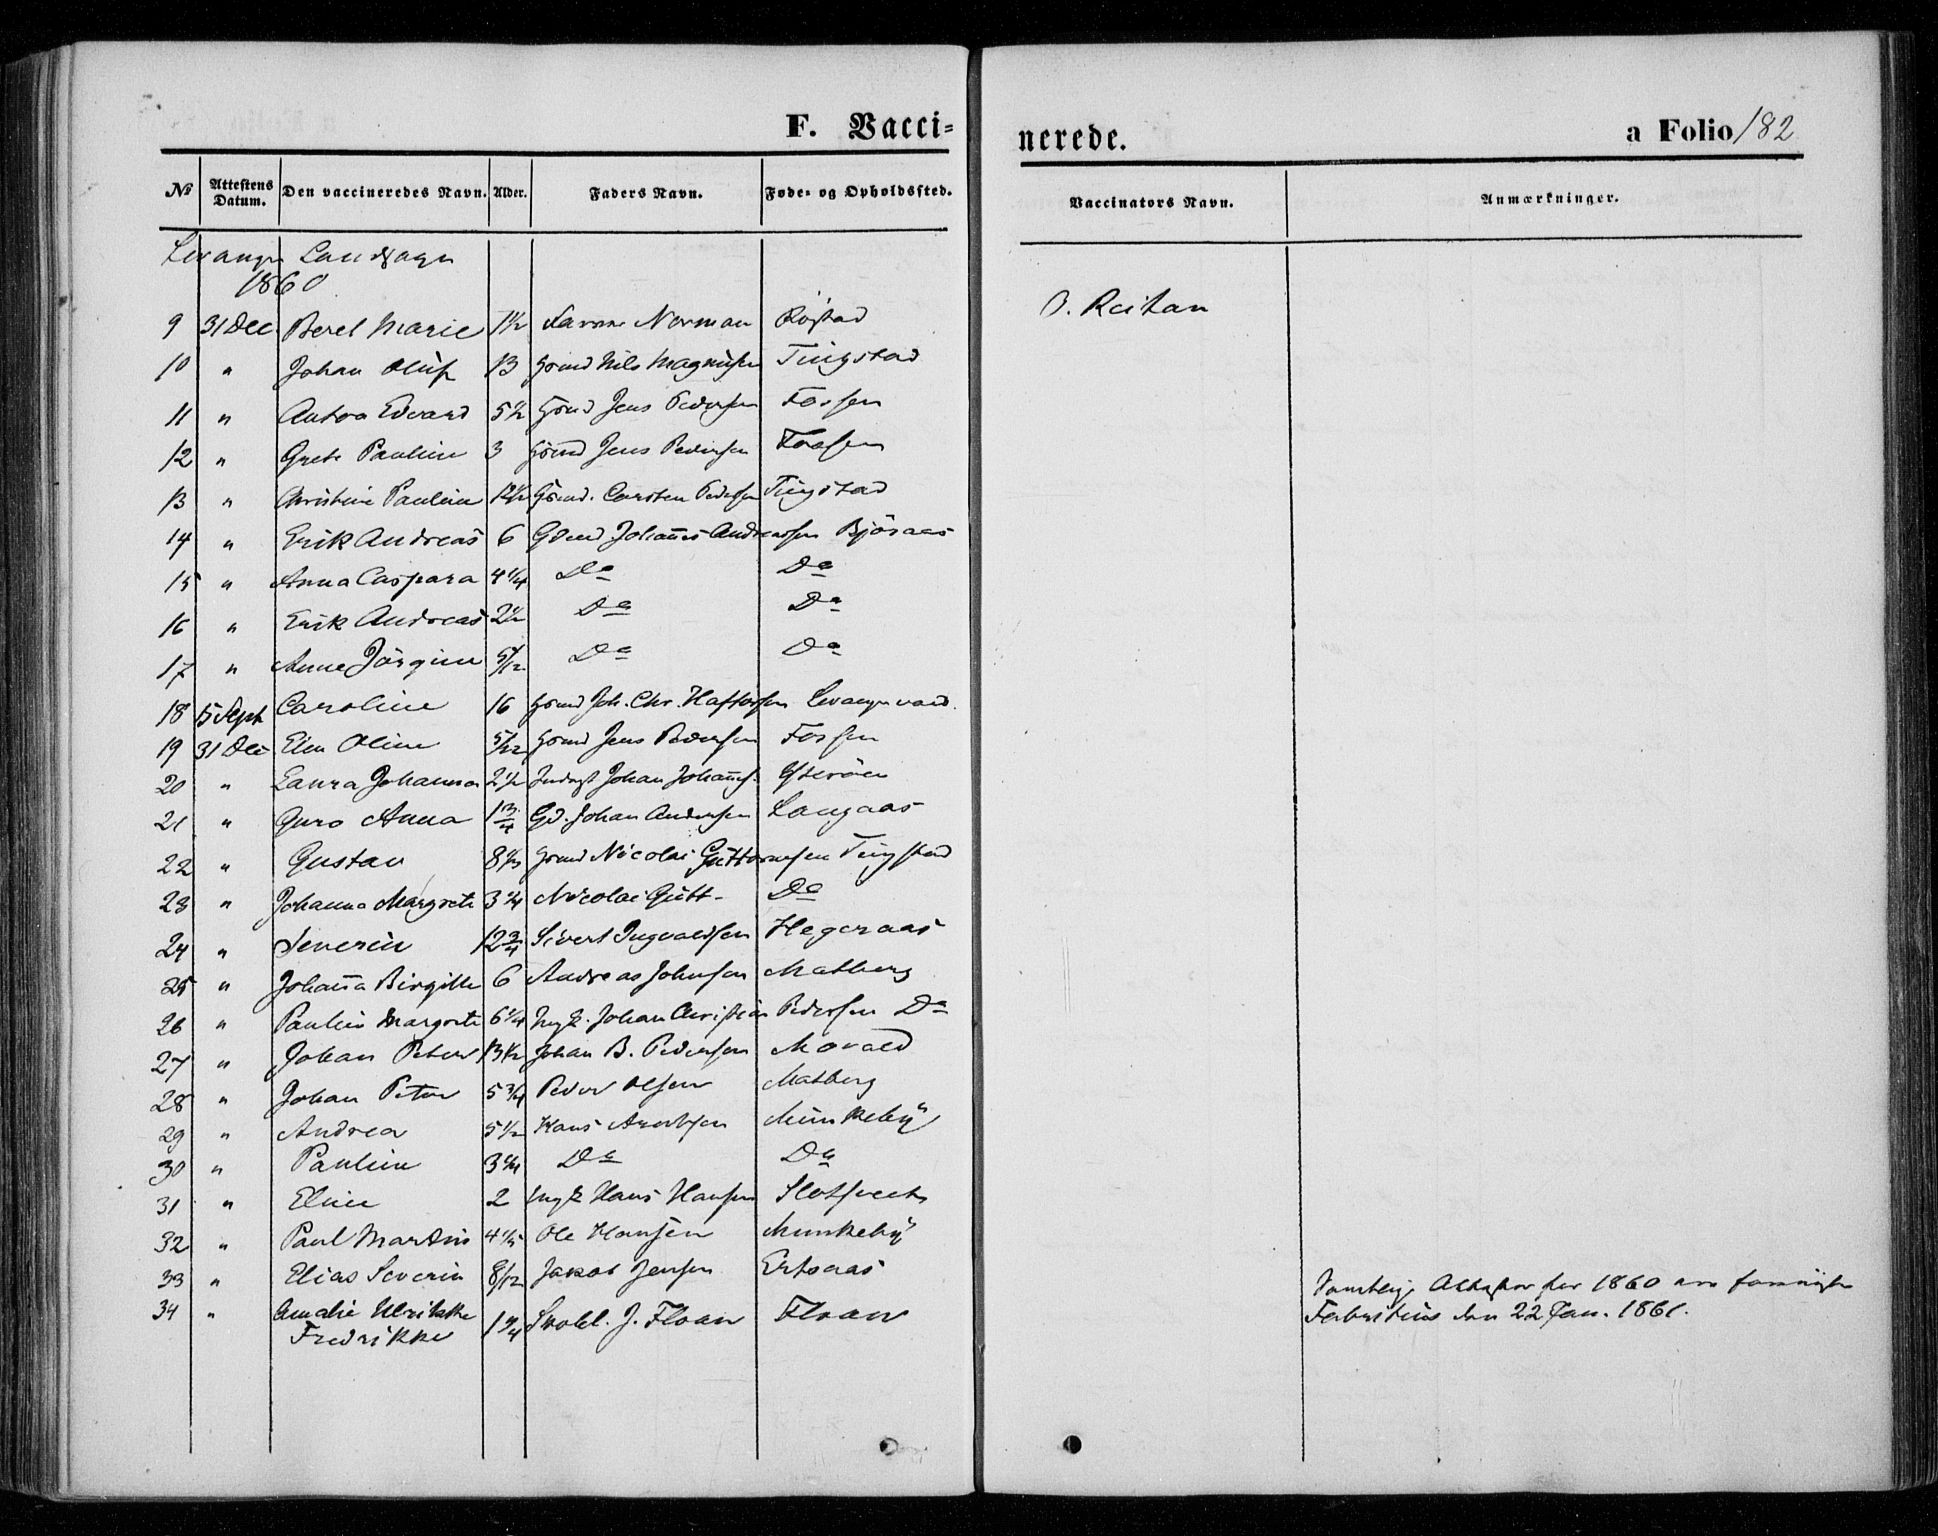 F. Vacci=
nerede.
a Folio 182
No Attestens Datum. Den vaccineredes Navn. Alder. Faders Navn. Føde- og Opholdssted.
Vaccinators Navn. Anmærkninger.
Levanger Landsogn
1860
9 31 Dec Beret Marie 1 1/2 Norman Røstad O. Reitan
10 " Johan Oluf 13 Gaamd Nils Magnussen Tingstad
11 " Anton Edvard 5 1/2 Gaamd Jens Pedersen Fossen
12 " Grete Pauline 3 Gaamd Jens Pedersen Fossen
13 " Christine Pauline 12 1/2 Gaamd. Carsten Pedersen Tingstad
14 " Erik Andreas 6 Johannes Andreassen Björaas
15 " Anna Caspara 4 1/4 Do Do
16 " Erik Andreas 2 1/2 Do Do
17 " Anne Jörgine 5/12 Do Do
18 15 Sept Caroline 16 Joh. Chr. Haftorsen
19 31 Dec Elen Oline 5/12 Jens Pedersen Fossen
20 " Laura Johanna 2 1/2 Johan Johannes. Ytterøen
21 " Guro Anna 1 3/4 Gd. Johan Andersen Langaas
22 " Gustav 8 1/3 Nicolai Guttormsen Tingstad
23 " Johanna Margrete 3 1/4 Nicolai Gutt- Do
24 " Severin 12 3/4 Sivert Ingvaldsen Hegeraas
25 " Johanna Birgitte 6 Andreas Johnsen Matberg
26 " Pauline Margrete 6 1/4 Johan Christian Pedersen Do
27 " Johan Peter 13 1/2 Johan B. Pedersen Movald
28 " Johan Peter 5 3/4 Peder Olsen Matberg
29 " Andrea 5 1/2 Hans Arntsen Munkeby
30 " Pauline 3 1/4 Do Do
31 " Eline 2 Hans Hansen
32 " Paul Martin 4 1/5 Ole Hansen Munkeby
33 " Elias Severin 8/12 Jakob Jensen Ertsaas
34 " Amalie Ulrikke 1 3/4 J. Floan Floan
Fredrikke
for 1860
den 22 Jan. 1861.